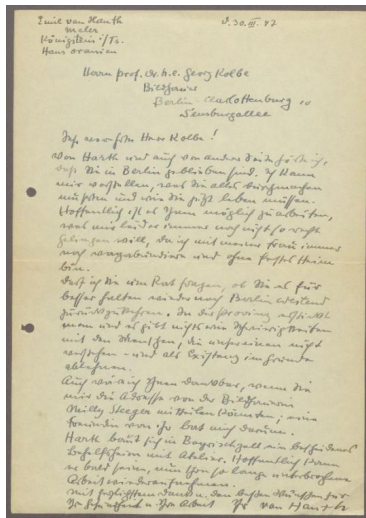 Emil van Hauth
Maler
Königstein i/Ts.
Haus Oranien
d. 30. III. 47
Herrn Prof. Dr. h.c. Georg Kolbe
Bildhauer
Berlin-Charlottenburg
Sensburgallee
Sehr verehrter Herr Kolbe!
Von Harth und auch von anderer Seite hörte ich,
dass Sie in Berlin geblieben sind. Ich kann
mir vorstellen, was Sie alles durchmachen
mußten und wie Sie jetzt leben müssen.
Hoffentlich ist es Ihnen möglich zu arbeiten,
was mir leider immer noch nicht so recht
gelingen will, da ich mit meiner Frau immer
noch vagabundiere und ohne festes Heim
bin.
Darf ich Sie um Rat fragen, ob Sie es für
besser halten wieder nach Berlin
zurückzukehren. In der Provinz erstickt
man und es gibt nichts wie Schwierigkeiten
mit den Menschen, die unsereinen nicht
verstehen und als Existenz im Grunde
ablehnen.
Auch wäre ich Ihnen dankbar, wenn Sie
mir die Adresse von der Bildhauerin
Milly Steger mitteilen könnten, eine
Freundin von ihr bat mich darum.
Harth baut sich in Bayrischzell ein bescheidenes
Behelfsheim mit Atelier. Hoffentlich kann
er bald seine, nun schon so lange unterbrochene
Arbeit wiederaufnehmen.
Mit herzlichem Dank, den besten Wünschen für
Ihre Arbeit Ihr van Hauth